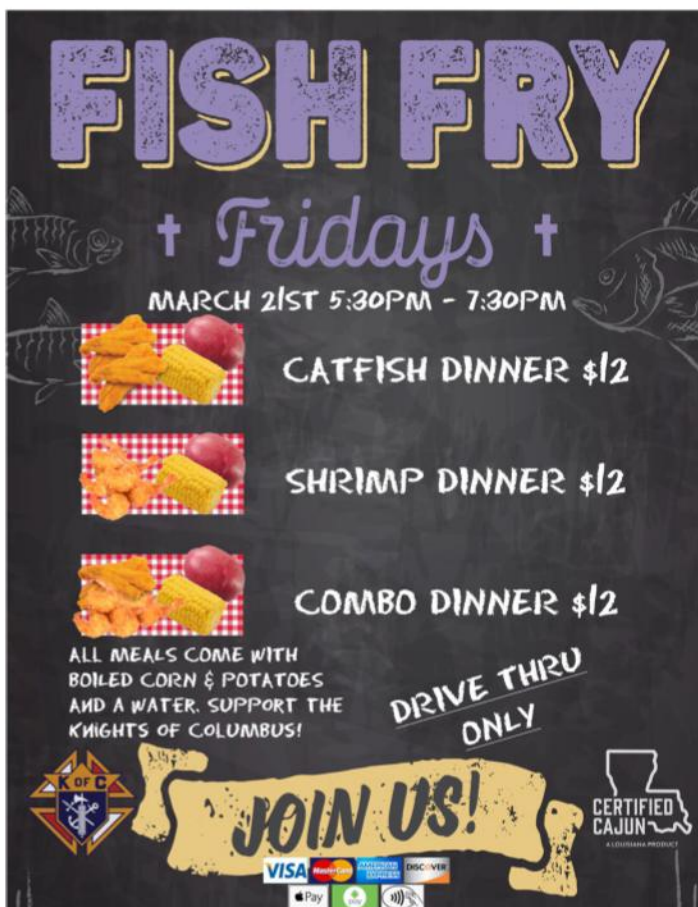 FISH FRY
Fridays
MARCH 21ST 5:30PM - 7:30PM
CATFISH DINNER $12
SHRIMP DINNER $12
COMBO DINNER $12
ALL MEALS COME WITH
BOILED CORN & POTATOES
AND A WATER. SUPPORT THE
KNIGHTS OF COLUMBUS!
DRIVE THRU
ONLY
K OF C
JOIN US!
CERTIFIED
CAJUN
A LOUISIANA PRODUCT
VISA MasterCard AMERICAN EXPRESS DISCOVER
Pay pay